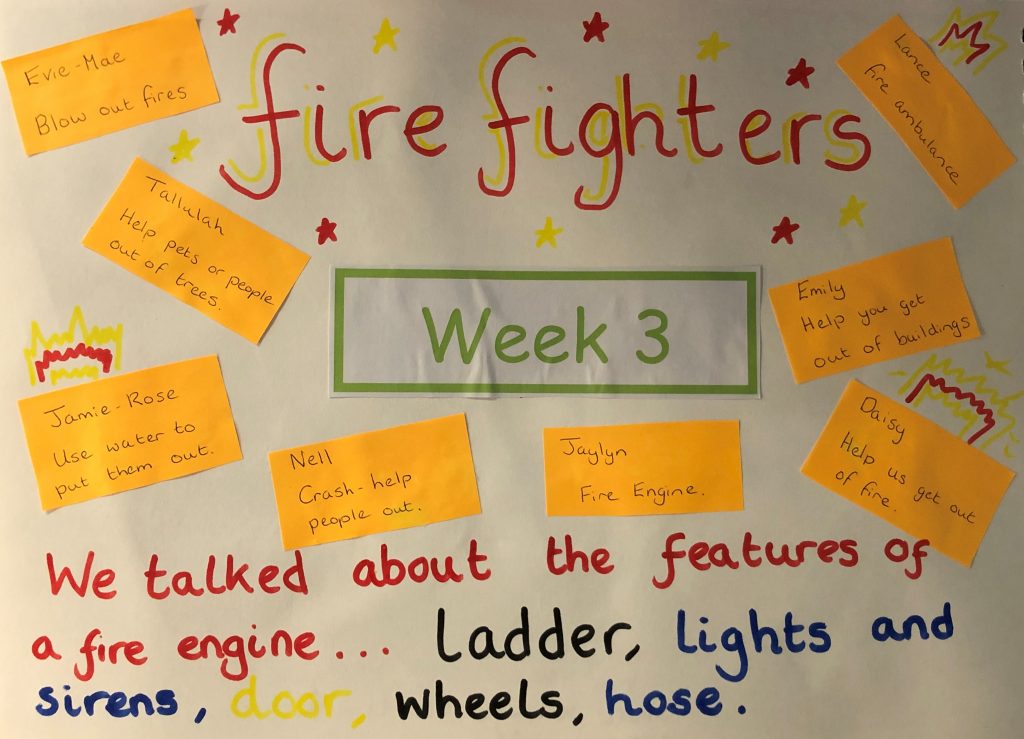 fire fighters
Evie-Mae
Blow out fires
Lance
fire ambulance
Tallulah
Help pets or people
out of trees.
Week 3
Emily
Help you get
out of buildings
Jamie-Rose
Use water to
put them out.
Nell
Crash-help
people out.
Jaylyn
Fire Engine.
Daisy
Help us get out
of fire.
We talked about the features of
a fire engine... ladder, lights and
sirens, door, wheels, hose.